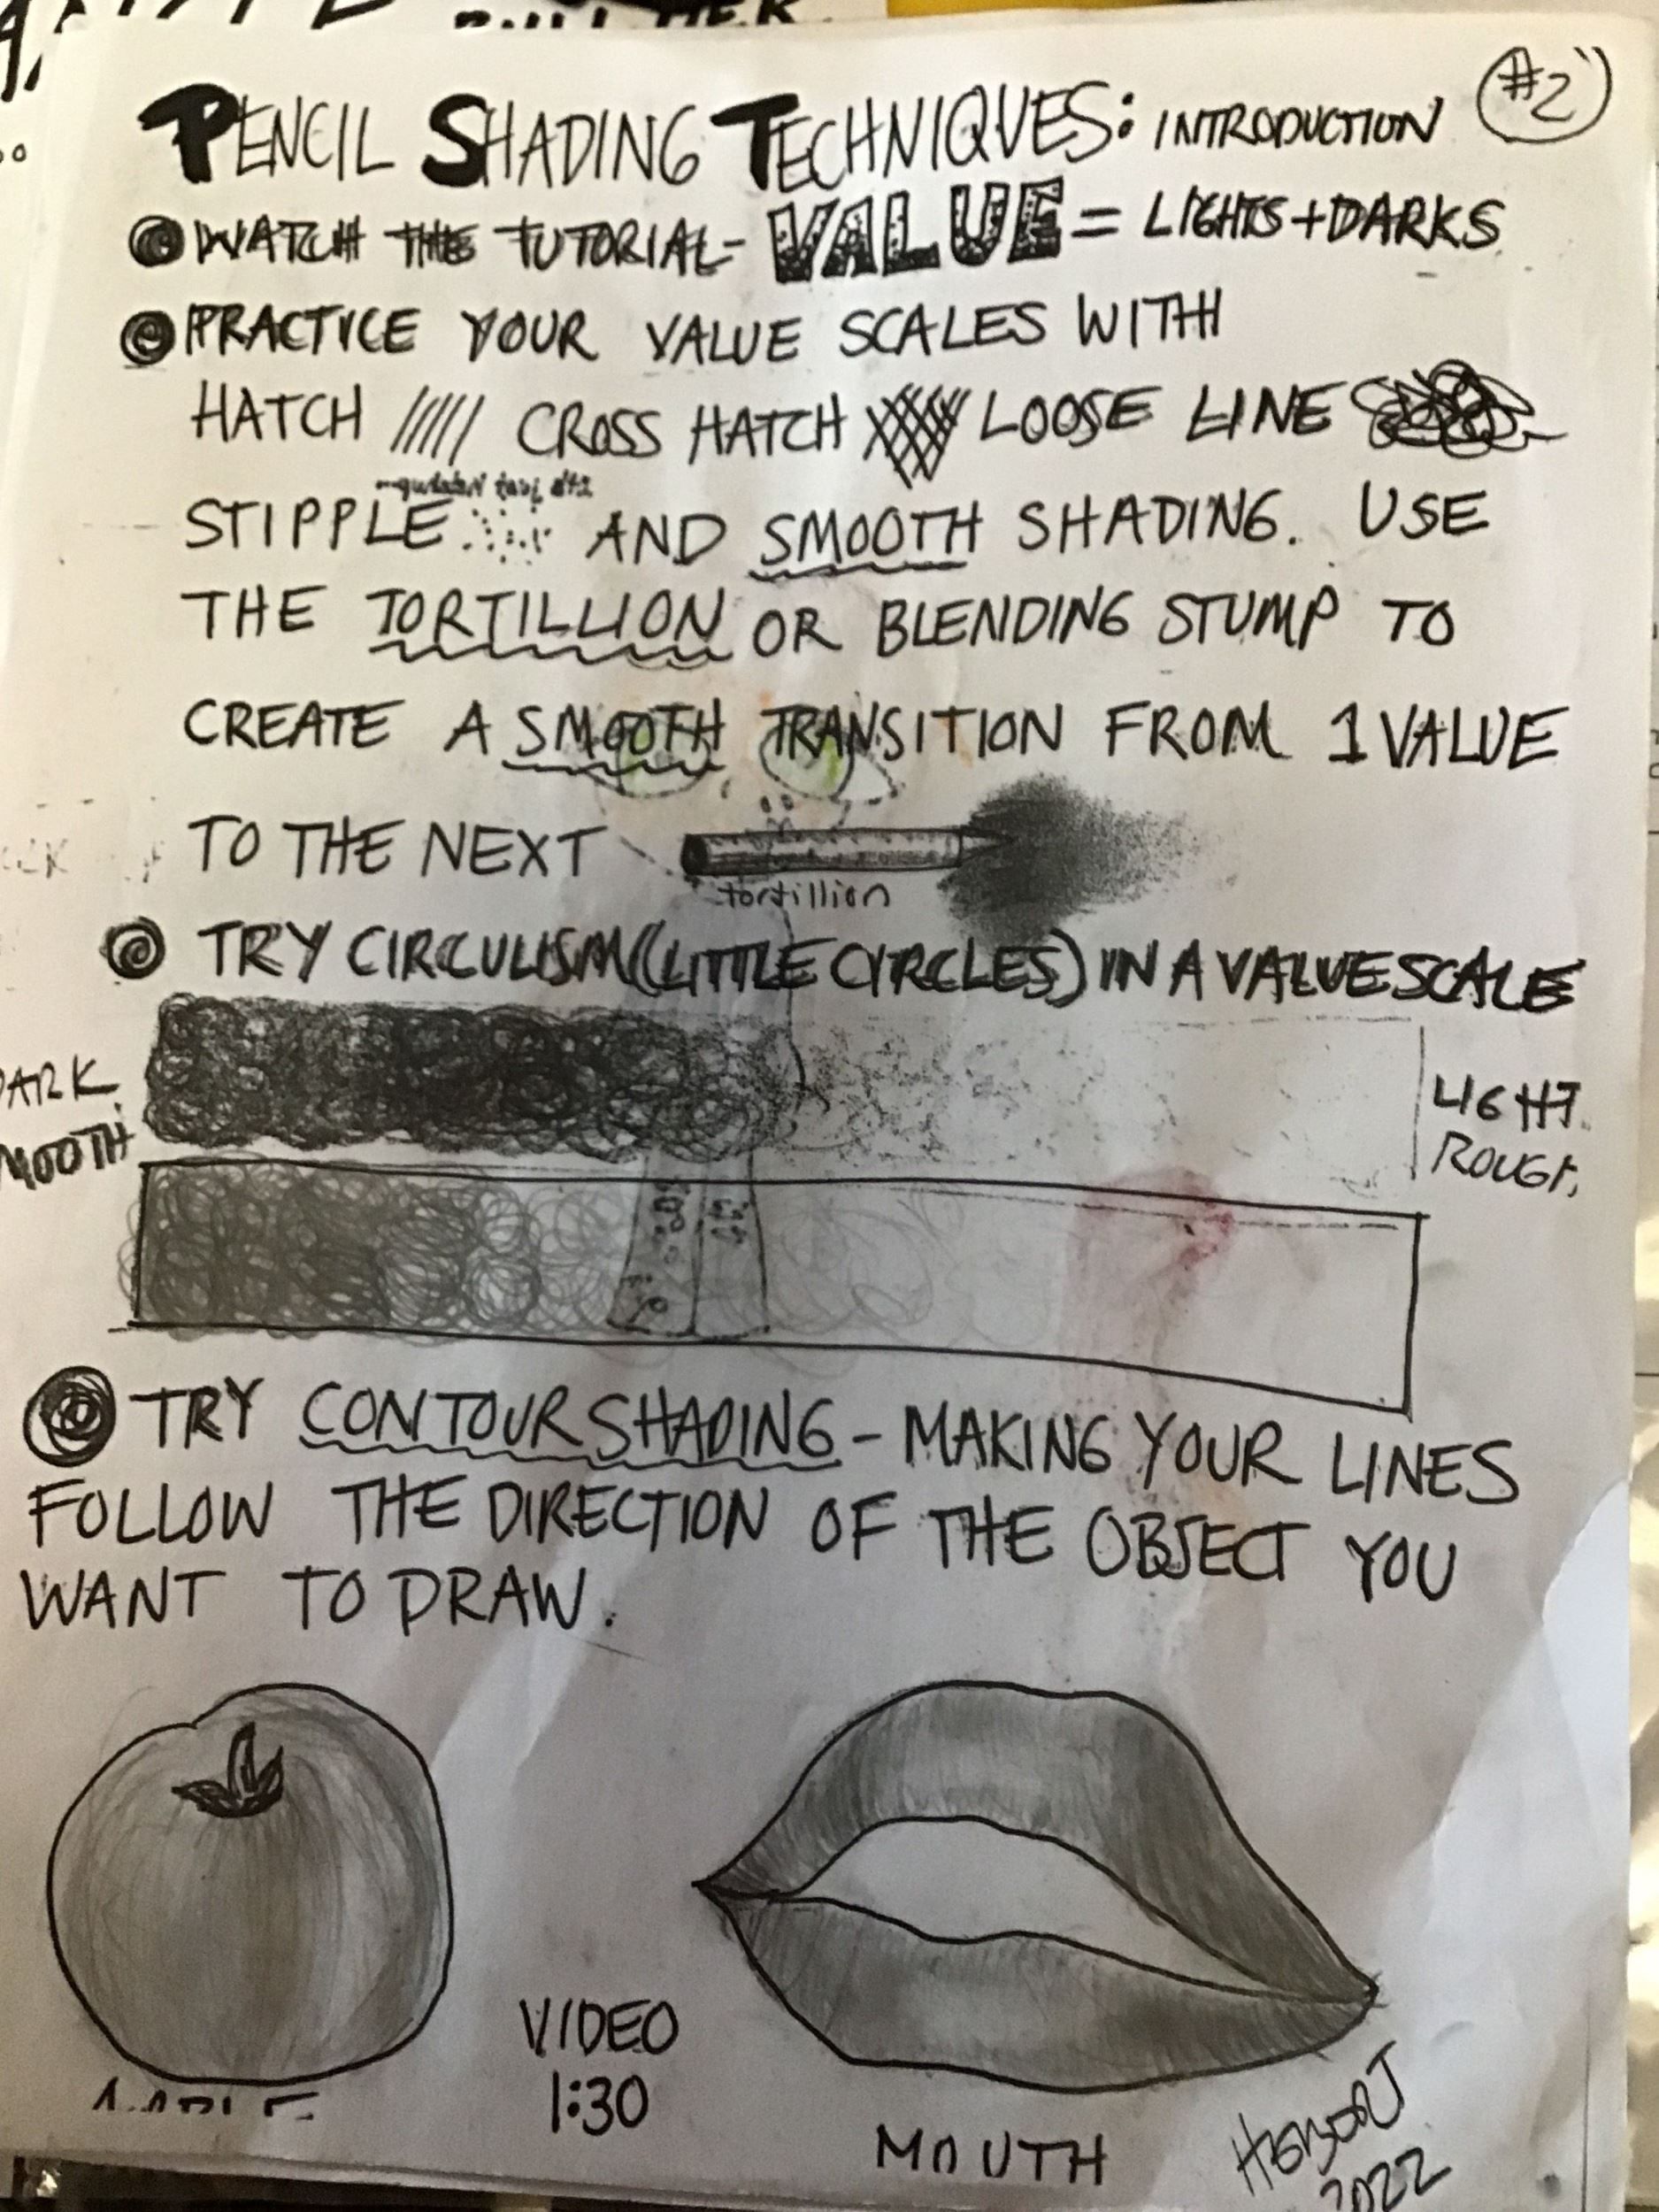 PENCIL SHADING TECHNIQUES: INTRODUCTION #2
WATCH THE TUTORIAL- VALUE = LIGHTS+DARKS
PRACTICE YOUR VALUE SCALES WITH
HATCH CROSS HATCH LOOSE LINE
STIPPLE AND SMOOTH SHADING. USE
THE TORTILLION OR BLENDING STUMP TO
CREATE A SMOOTH TRANSITION FROM 1 VALUE
TO THE NEXT
tortillion
TRY CIRCULISM (LITTLE CIRCLES) IN A VALUE SCALE
DARK
SMOOTH
LIGHT
ROUGH
TRY CONTOUR SHADING - MAKING YOUR LINES
FOLLOW THE DIRECTION OF THE OBJECT YOU
WANT TO DRAW.
APPLE
VIDEO
1:30
MOUTH
2022